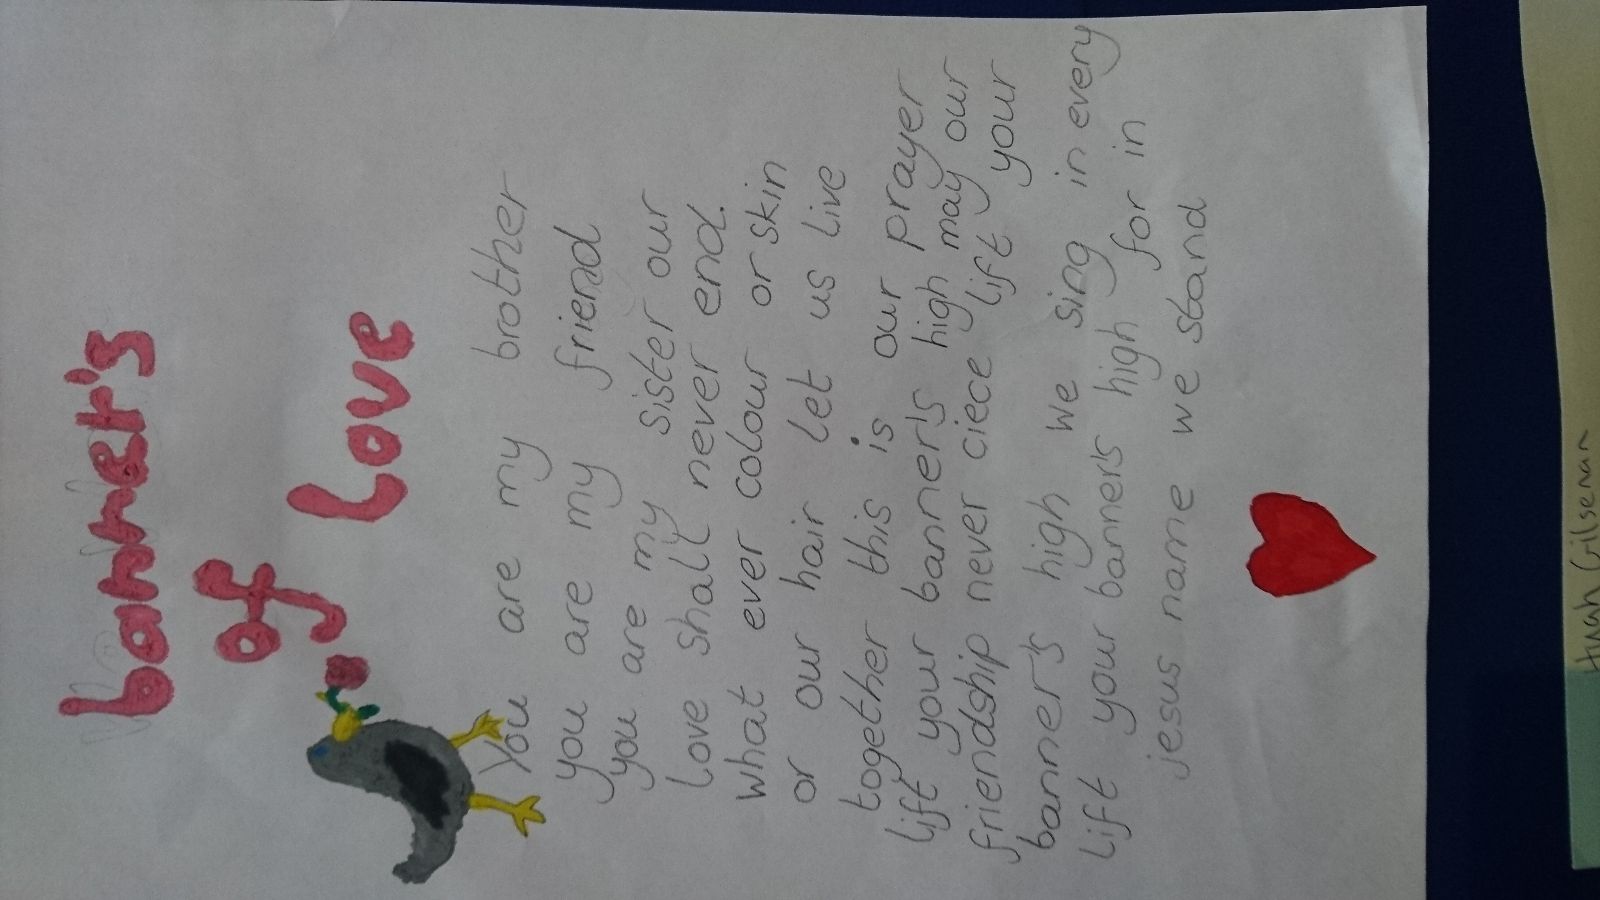 banner's
of
Love
You are my brother
you are my friend
you are my sister our
love shall never end.
what ever colour or skin
or our hair let us live
together this is our prayer
lift your banner's high may our
friendship never ciece lift your
banner's high we sing in every
lift your banner's high for in
jesus name we stand
Hugh Gilsenan